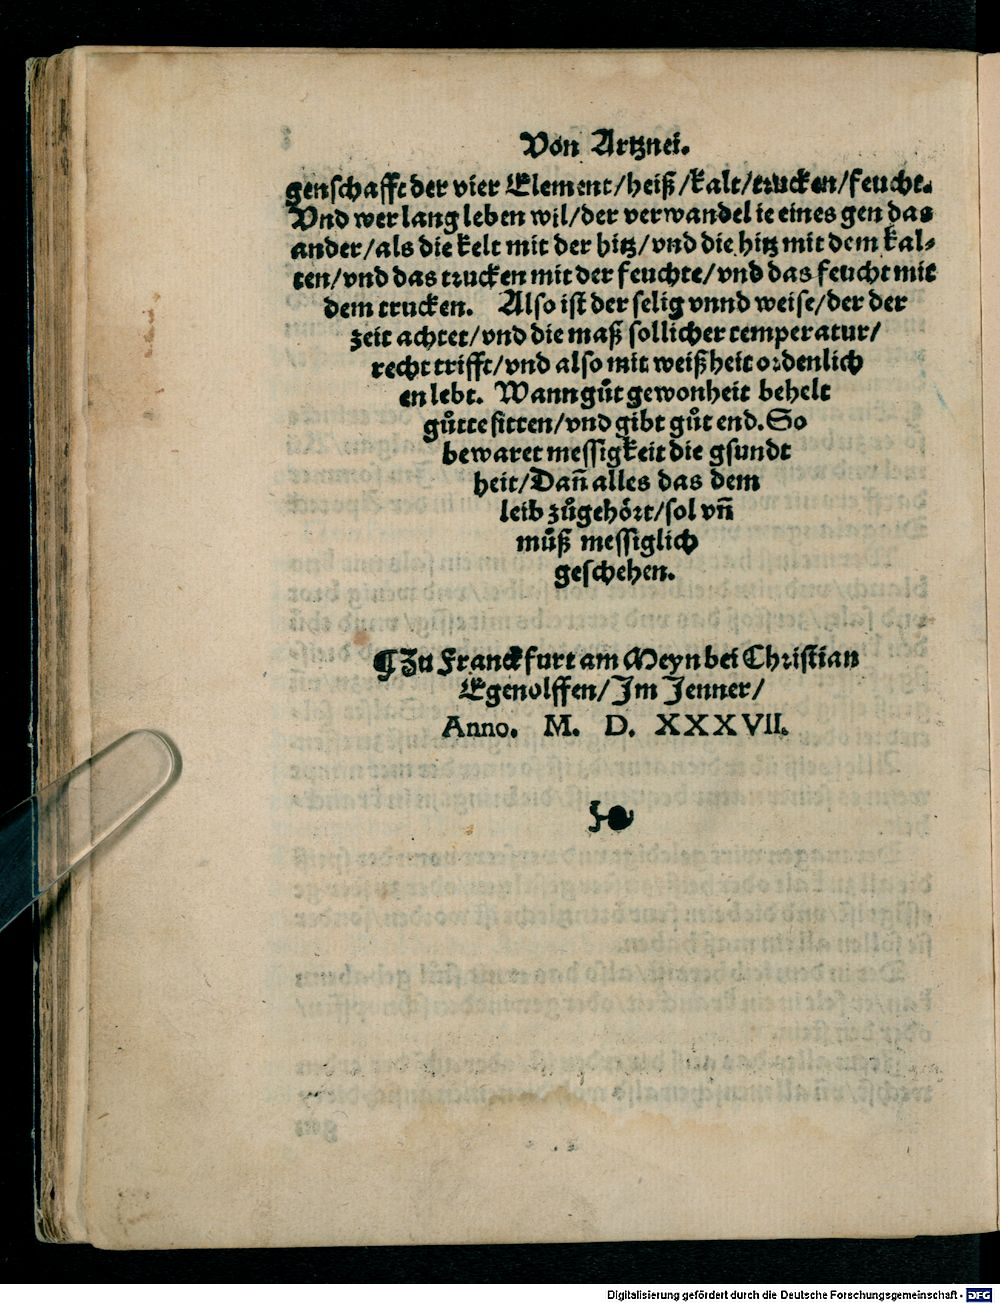 Von Artznei.
genschafft der vier Element/heiß/kalt/trucken/feucht.
Vnd wer lang leben wil/der verwandel ie eines gen das
ander/als die kelt mit der hitz/vnd die hitz mit dem kal⸗
ten/vnd das trucken mit der feuchte/vnd das feucht mit
dem trucken. Also ist der selig vnnd weise/der der
zeit achtet/vnd die maß sollicher temperatur/
recht trifft/vnd also mit weißheit ordenlich
en lebt. Wann gůt gewonheit behelt
gůtte sitten/vnd gibt gůt end. So
bewaret messigkeit die gsundt
heit/Dañ alles das dem
leib zůgehört/sol vñ
můß messiglich
geschehen.
¶Zu Franckfurt am Meyn bei Christian
Egenolffen/Im Jenner/
Anno. M. D. XXXVII.
Digitalisierung gefördert durch die Deutsche Forschungsgemeinschaft - DFG